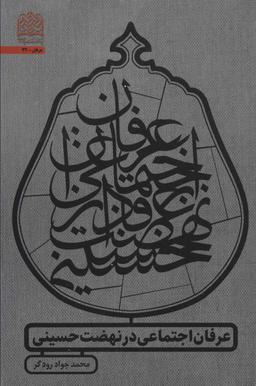 عرفان - ۳۲
عرفان اجتماعی در نهضت حسینی
عرفان اجتماعی در نهضت حسینی
محمد جواد رودگر